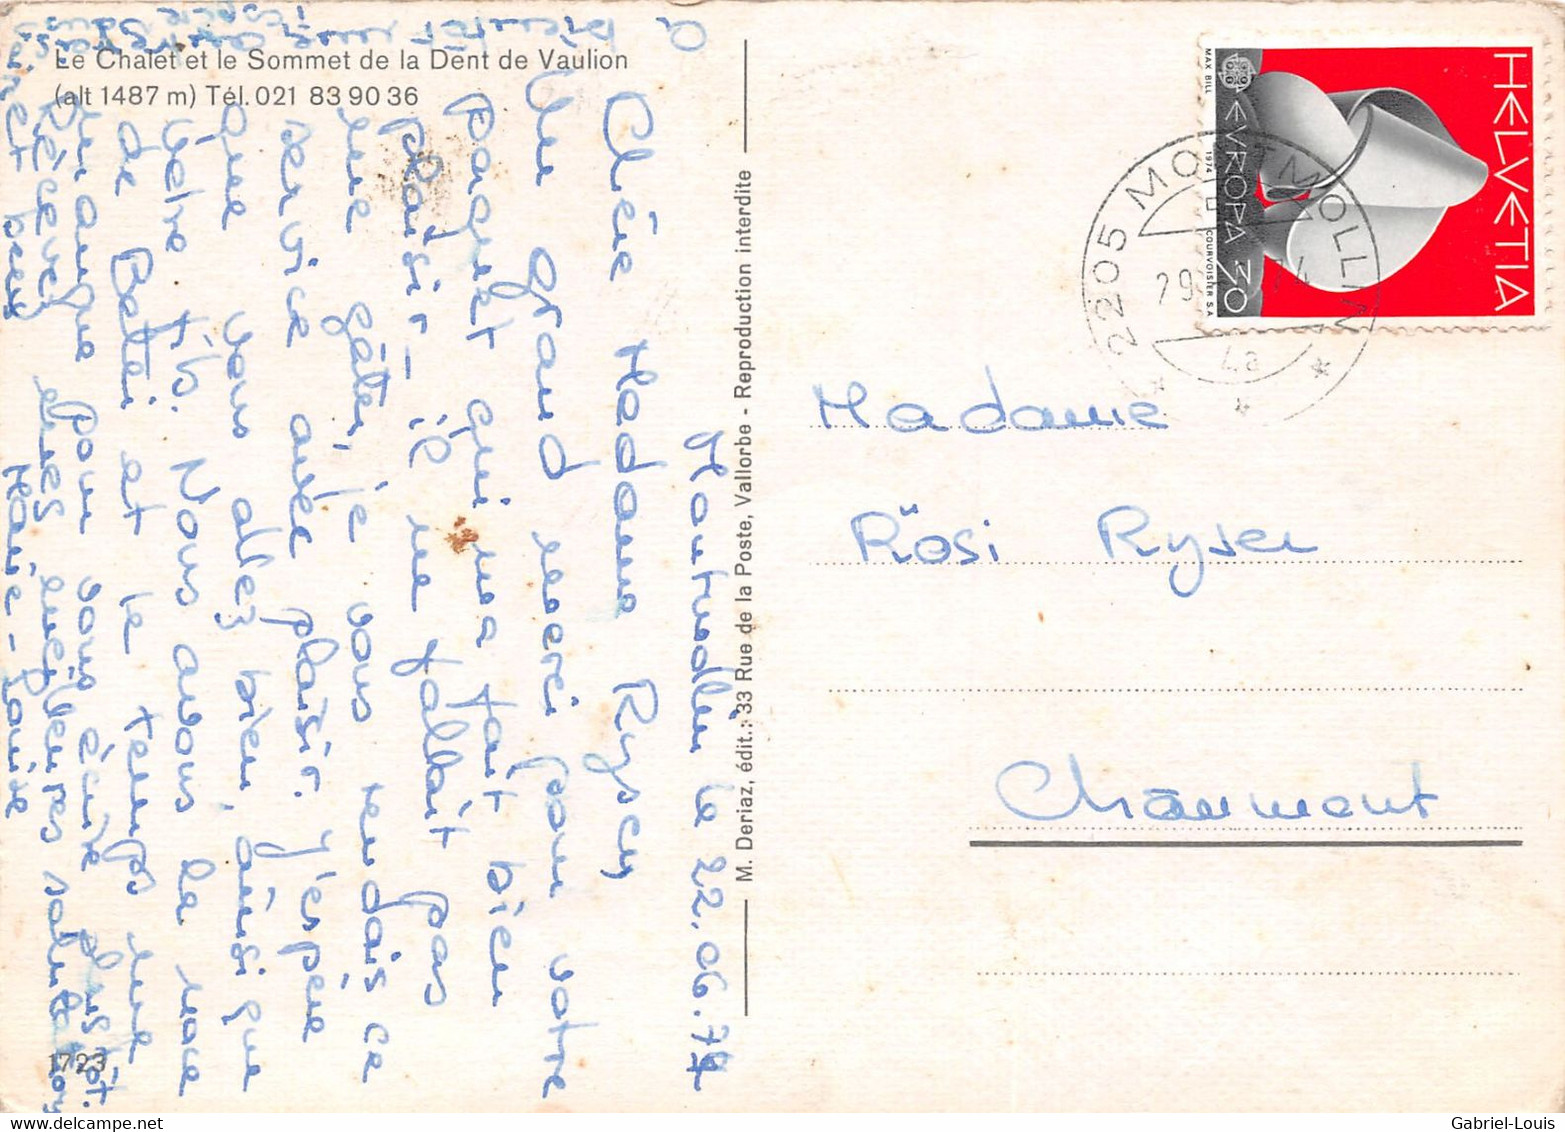 Le Chalet et le Sommet de la Dent de Vaulion
(alt 1487 m) Tél. 021 83 90 36
le 22.06.74
Chère Madame Ryser
Un grand merci pour votre
paquet qui m'a fait bien
plaisir - il ne fallait pas
me gâter, je vous rendais ce
service avec plaisir. J'espère
que vous allez bien, ainsi que
votre fils. Nous avons le
de et le temps me
manque pour vous écrire plus tôt.
Recevez mes meilleures
Marie-Louise
et Beny
A bientôt
j'espère
M. Deriaz, édit.: 33 Rue de la Poste, Vallorbe - Reproduction interdite
1723
HELVETIA
EVROPA 30
MAX BILL
1974
COURVOISIER S.A.
2205 MONTMOLLIN
29
74
Madame
Rösi Ryser
Chaumont
Gabriel-Louis